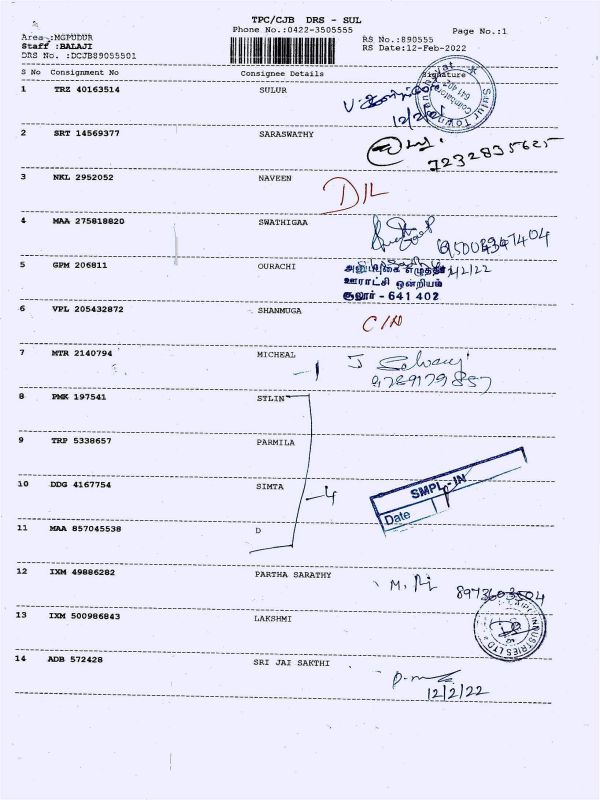 TPC/CJB DRS - SUL
Phone No.:0422-3505555
Page No.:1
Area :MGPUDUR
RS No.:890555
Staff :BALAJI
RS Date:12-Feb-2022
DRS No. :DCJB89055501
S No Consignment No Consignee Details Signature
1 TRZ 40163514 SULUR
12/2/22
2 SRT 14569377 SARASWATHY
7232835625
3 NKL 2952052 NAVEEN
D/L
4 MAA 275818820 SWATHIGAA
950043947404
5 GPM 206811 OURACHI
ஊராட்சி ஒன்றியம்
சூலூர் - 641 402
6 VPL 205432872 SHANMUGA
C/N
7 MTR 2140794 MICHEAL
-1
J Selvaraj
9789179857
8 PMK 197541 STLIN
9 TRP 5338657 PARMILA
10 DDG 4167754 SIMTA
-4
SMPL-IN
Date
11 MAA 857045538 D
12 IXM 49886282 PARTHA SARATHY
8973603504
13 IXM 500986843 LAKSHMI
INDUSTRIES LTD
14 ADB 572428 SRI JAI SAKTHI
12/2/22